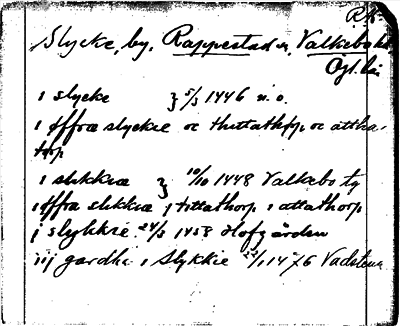 Slycke, by, Rappestad sn, Valkebo hd
Ögl. län
i slycke } 5/3 1446 u.o.
i øffræ slyckie oc thittathorp oc attha-
torp
i slikkiæ } 10/10 1448 Valkebo tg
i øffra slikkiæ j tittathorp i attathorp
j slykkie 24/3 1458 Hofgården
iij gardha i Slykkie 22/1 1476 Vadstena